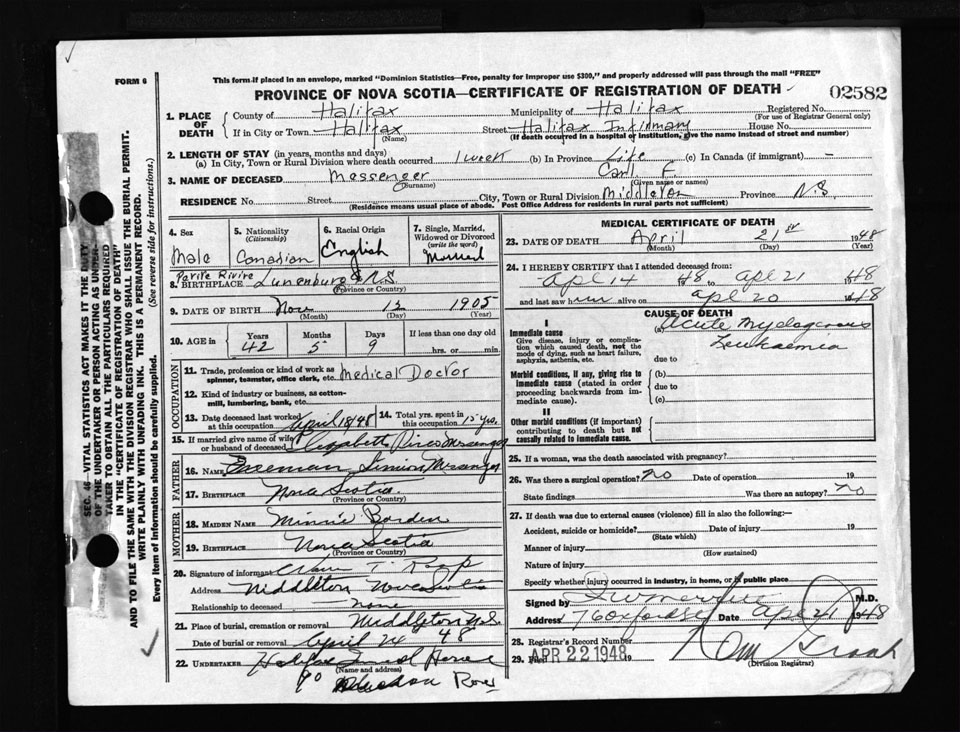 FORM 6
This form if placed in an envelope, marked "Dominion Statistics—Free, penalty for improper use $300," and properly addressed will pass through the mail "FREE"
PROVINCE OF NOVA SCOTIA—CERTIFICATE OF REGISTRATION OF DEATH
02582
SEC. 46—VITAL STATISTICS ACT MAKES IT THE DUTY
OF THE UNDERTAKER OR PERSON ACTING AS UNDER-
TAKER TO OBTAIN ALL THE PARTICULARS REQUIRED
IN THE "CERTIFICATE OF REGISTRATION OF DEATH"
AND TO FILE THE SAME WITH THE DIVISION REGISTRAR WHO SHALL ISSUE THE BURIAL PERMIT.
WRITE PLAINLY WITH UNFADING INK. THIS IS A PERMANENT RECORD.
Every item of Information should be carefully supplied. (See reverse side for instructions.)
1. PLACE OF DEATH
County of Halifax Municipality of Halifax Registered No.
(For use of Registrar General only)
If in City or Town Halifax Street Halifax Infirmary House No.
(Name) (If death occurred in a hospital or institution, give the name instead of street and number)
2. LENGTH OF STAY (in years, months and days)
(a) In City, Town or Rural Division where death occurred 1 week (b) In Province Life (c) In Canada (if immigrant) —
3. NAME OF DECEASED Messenger Carl F.
(Surname) (Given name or names)
RESIDENCE No. Street City, Town or Rural Division Middleton Province N.S.
(Residence means usual place of abode. Post Office Address for residents in rural parts not sufficient)
4. Sex Male
5. Nationality (Citizenship) Canadian
6. Racial Origin English
7. Single, Married, Widowed or Divorced (write the word) Married
Petite Rivire
8. BIRTHPLACE Lunenburg N.S.
(Province or Country)
9. DATE OF BIRTH Nov 12 1905
(Month) (Day) (Year)
10. AGE in Years Months Days If less than one day old
42 5 9 hrs. or min.
OCCUPATION
11. Trade, profession or kind of work as spinner, teamster, office clerk, etc. Medical Doctor
12. Kind of industry or business, as cotton-mill, lumbering, bank, etc.
13. Date deceased last worked at this occupation April 18/48
14. Total yrs. spent in this occupation 15 yrs.
15. If married give name of wife or husband of deceased Elizabeth
FATHER
16. NAME Freeman
17. BIRTHPLACE Nova Scotia
(Province or Country)
MOTHER
18. MAIDEN NAME Minnie Borden
19. BIRTHPLACE Nova Scotia
(Province or Country)
20. Signature of informant
Address Middleton Nova Scotia
Relationship to deceased none
21. Place of burial, cremation or removal Middleton N.S.
Date of burial or removal April 24 48
22. UNDERTAKER Halifax Funeral Home
(Name and address)
MEDICAL CERTIFICATE OF DEATH
23. DATE OF DEATH April 21st 1948
(Month) (Day) (Year)
24. I HEREBY CERTIFY that I attended deceased from:
Apl 14 1948 to Apl 21 1948
and last saw him alive on Apl 20 1948
CAUSE OF DEATH
I
Immediate cause
Give disease, injury or complication which caused death, not the mode of dying, such as heart failure, asphyxia, asthenia, etc.
(a) Acute Myelogenous Leukaemia
due to
Morbid conditions, if any, giving rise to immediate cause (stated in order proceeding backwards from immediate cause).
(b)
due to
(c)
II
Other morbid conditions (if important) contributing to death but not causally related to immediate cause.
25. If a woman, was the death associated with pregnancy?
26. Was there a surgical operation? no Date of operation 19
State findings Was there an autopsy? no
27. If death was due to external causes (violence) fill in also the following:—
Accident, suicide or homicide? Date of injury 19
(State which)
Manner of injury
(How sustained)
Nature of injury
Specify whether injury occurred in industry, in home, or in public place
Signed by M.D.
Address Date Apl 21 1948
28. Registrar's Record Number
29. Filed APR 22 1948 19
(Division Registrar)